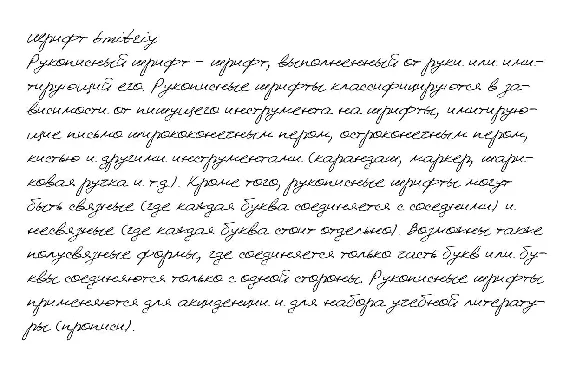 шрифт Dmitriy
Рукописный шрифт - шрифт, выполненный от руки или ими-
тирующий его. Рукописные шрифты классифицируются в за-
висимости от пишущего инструмента на шрифты, имитирую-
щие письмо ширококонечным пером, остроконечным пером,
кистью и другими инструментами (карандаш, маркер, шари-
ковая ручка и т.д.). Кроме того, рукописные шрифты могут
быть связные (где каждая буква соединяется с соседними) и
несвязные (где каждая буква стоит отдельно). Возможны также
полусвязные формы, где соединяется только часть букв или бу-
квы соединяются только с одной стороны. Рукописные шрифты
применяются для акциденции и для набора учебной литерату-
ры (прописи).